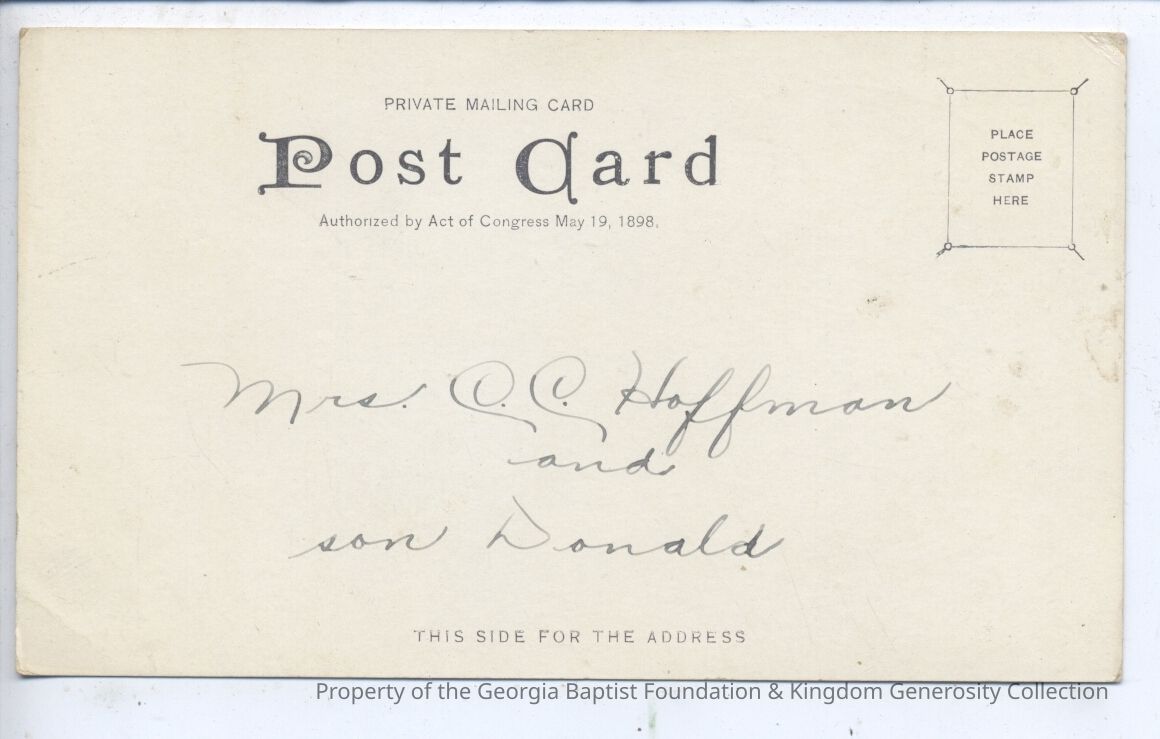 PRIVATE MAILING CARD
Post Card
Authorized by Act of Congress May 19, 1898.
PLACE
POSTAGE
STAMP
HERE
Mrs. C. C. Hoffman
and
son Donald
THIS SIDE FOR THE ADDRESS
Property of the Georgia Baptist Foundation & Kingdom Generosity Collection